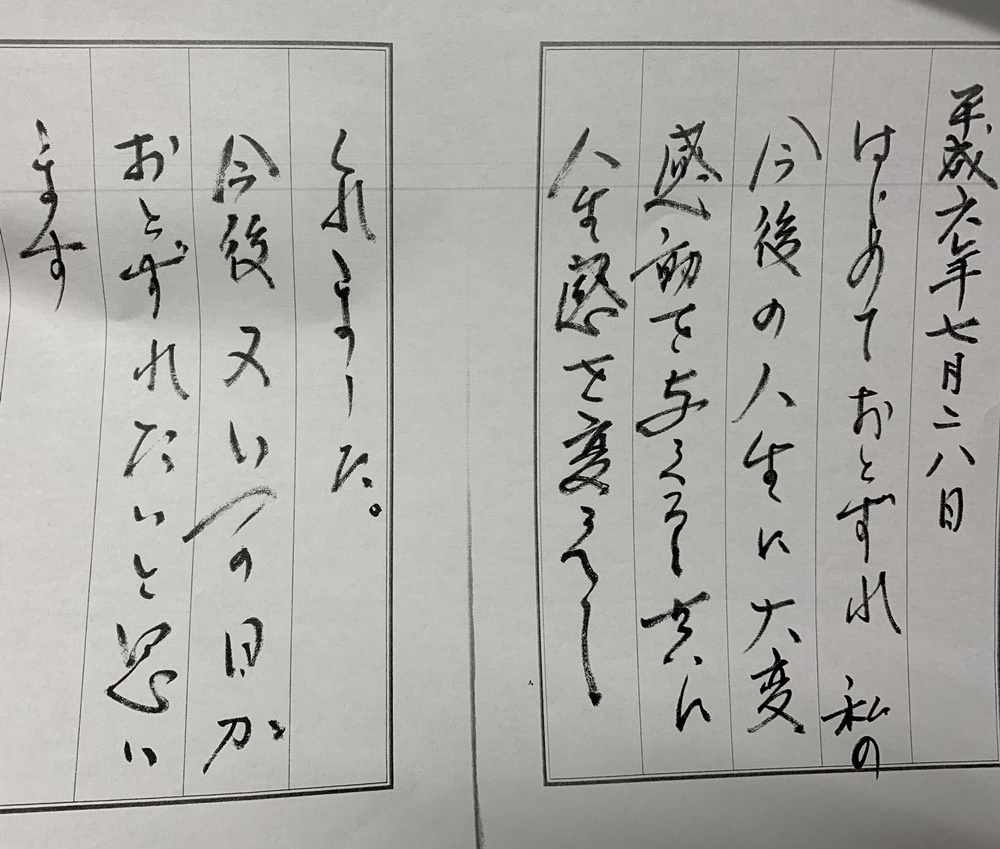 平成六年七月二八日
はじめておとずれ 私の
今後の人生に大変
感動を与えると共に
人生感を変えて
くれました。
今後又いつの日か
おとずれたいと思い
ます